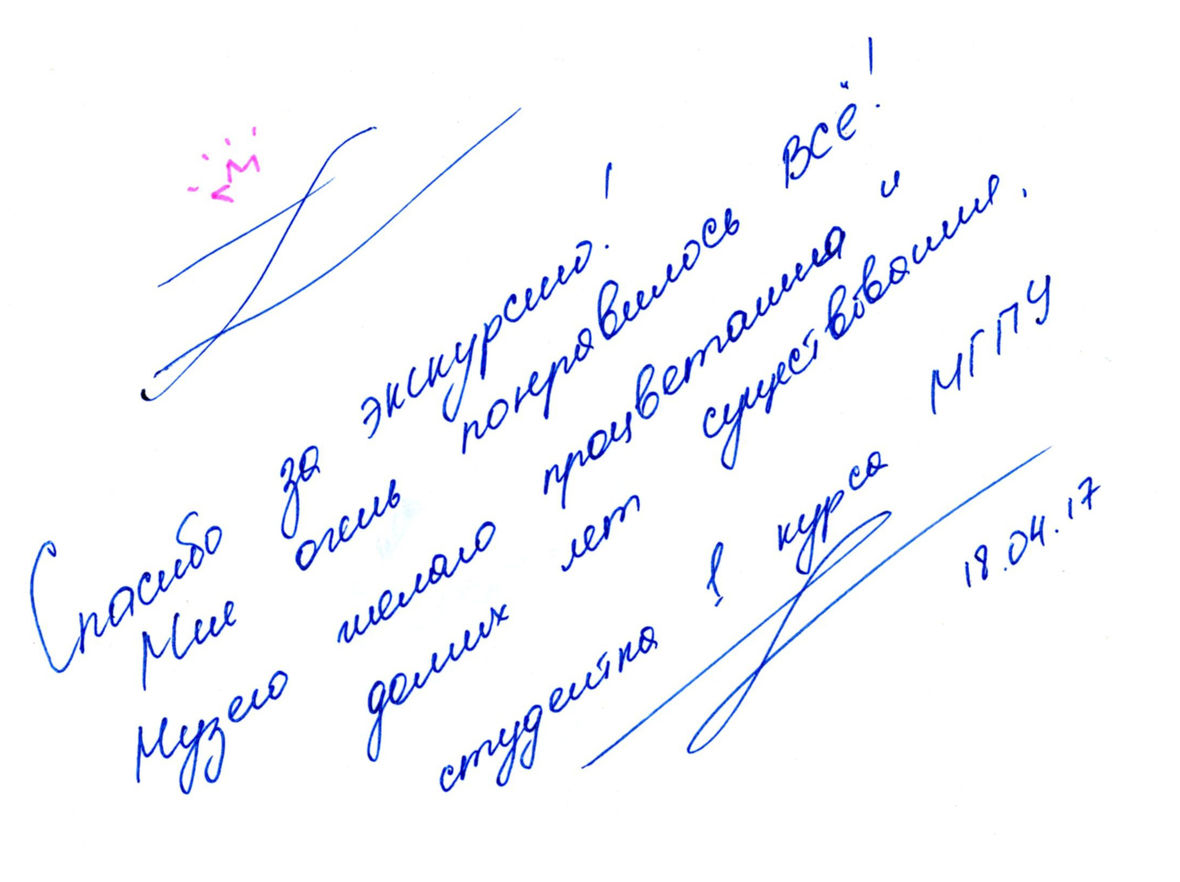 Спасибо за экскурсию!
Мне очень понравилось всё!
Музею желаю процветания и
долгих лет существования.
студентка 1 курса МГПУ
18.04.17